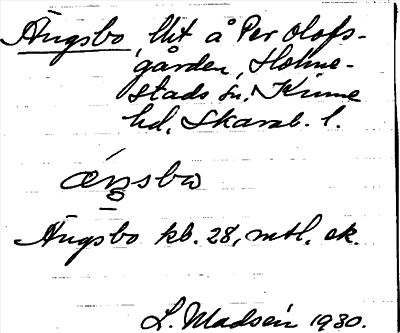 Ängsbo, lht å Per Olofs-
gården, Holme-
stads sn. Kinne
hd, Skarab. l.
ængsbo
Ängsbo kb. 28, mtl. ek.
L. Madsén 1930.